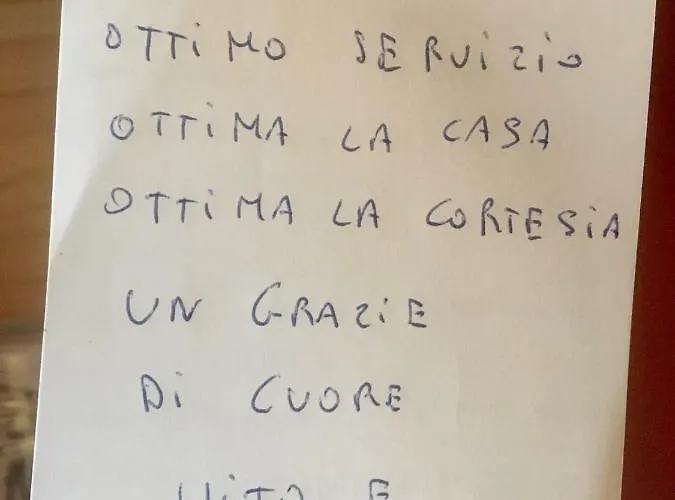 OTTiMO SERViZiO
OTTiMA LA CASA
OTTiMA LA CORTESiA
UN GRAZiE
Di CUORE
ViTO E